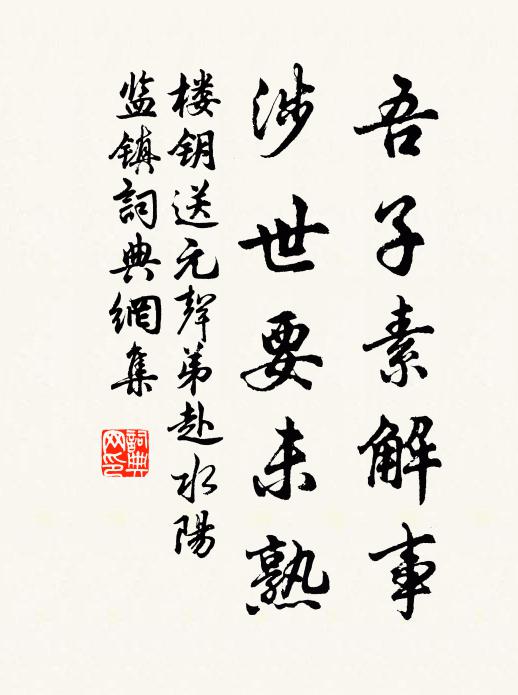 吾子素解事
涉世要未熟
楼钥送元聲弟赴水陽
监镇詞典網集
詞典网印